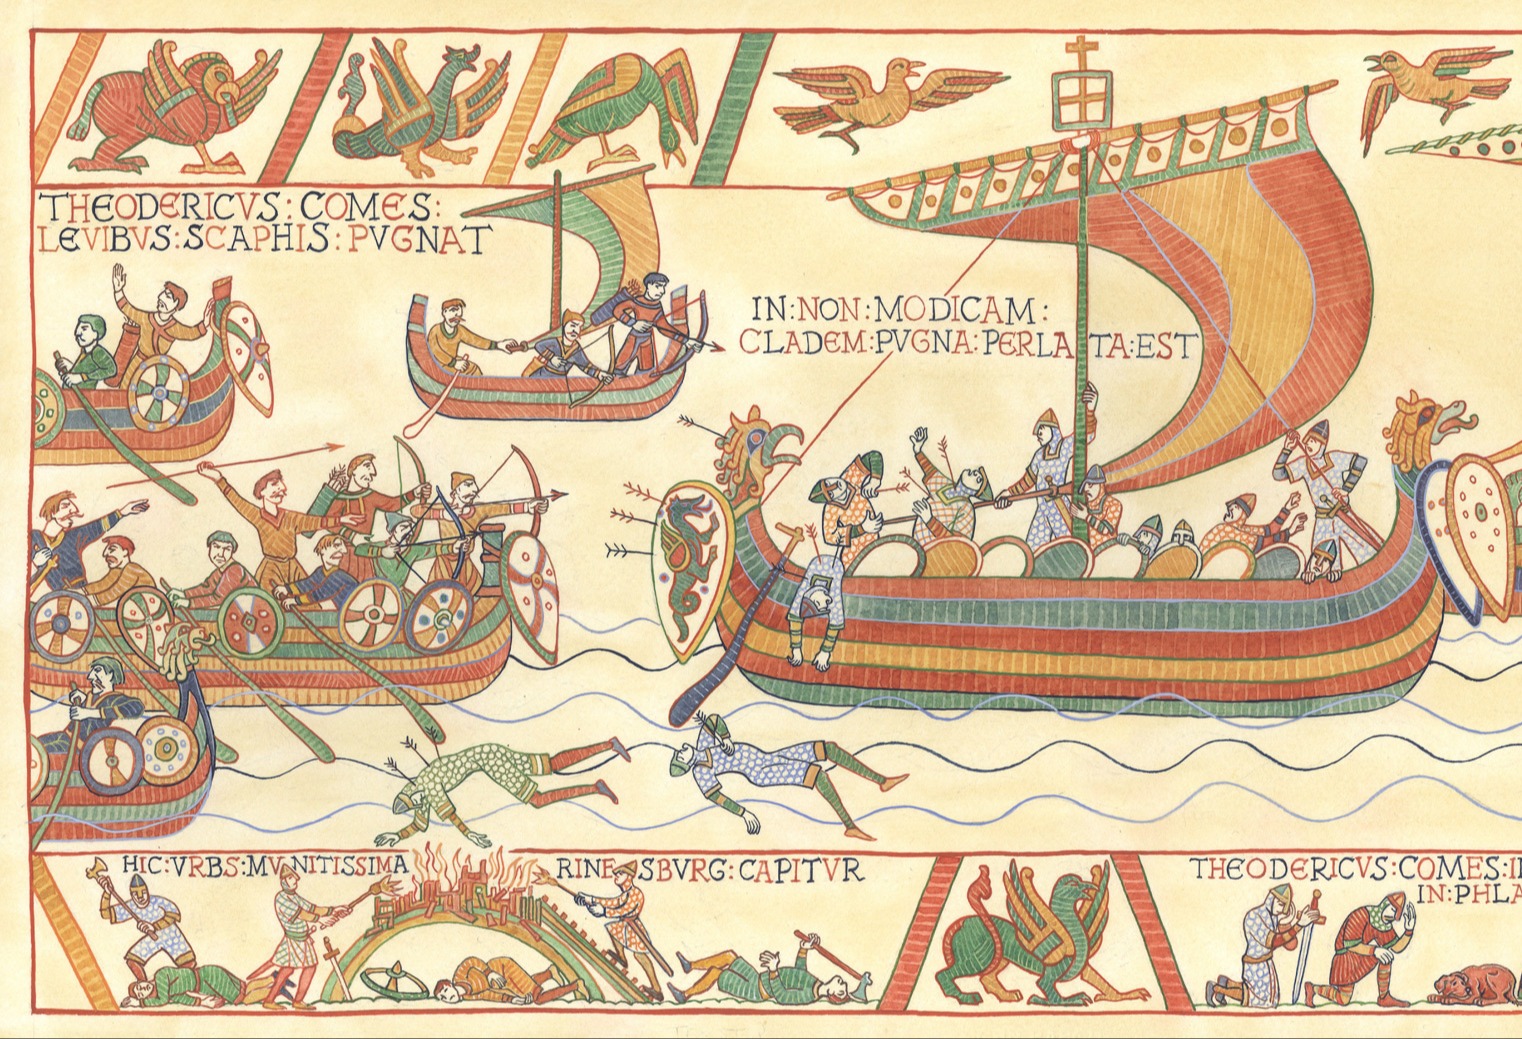 THEODERICVS : COMES :
LEVIBVS : SCAPHIS : PVGNAT
IN : NON : MODICAM :
CLADEM : PVGNA : PERLATA : EST
HIC : VRBS : MVNITISSIMA RINESBVRG : CAPITVR
THEODERICVS : COMES :
IN : PHLA